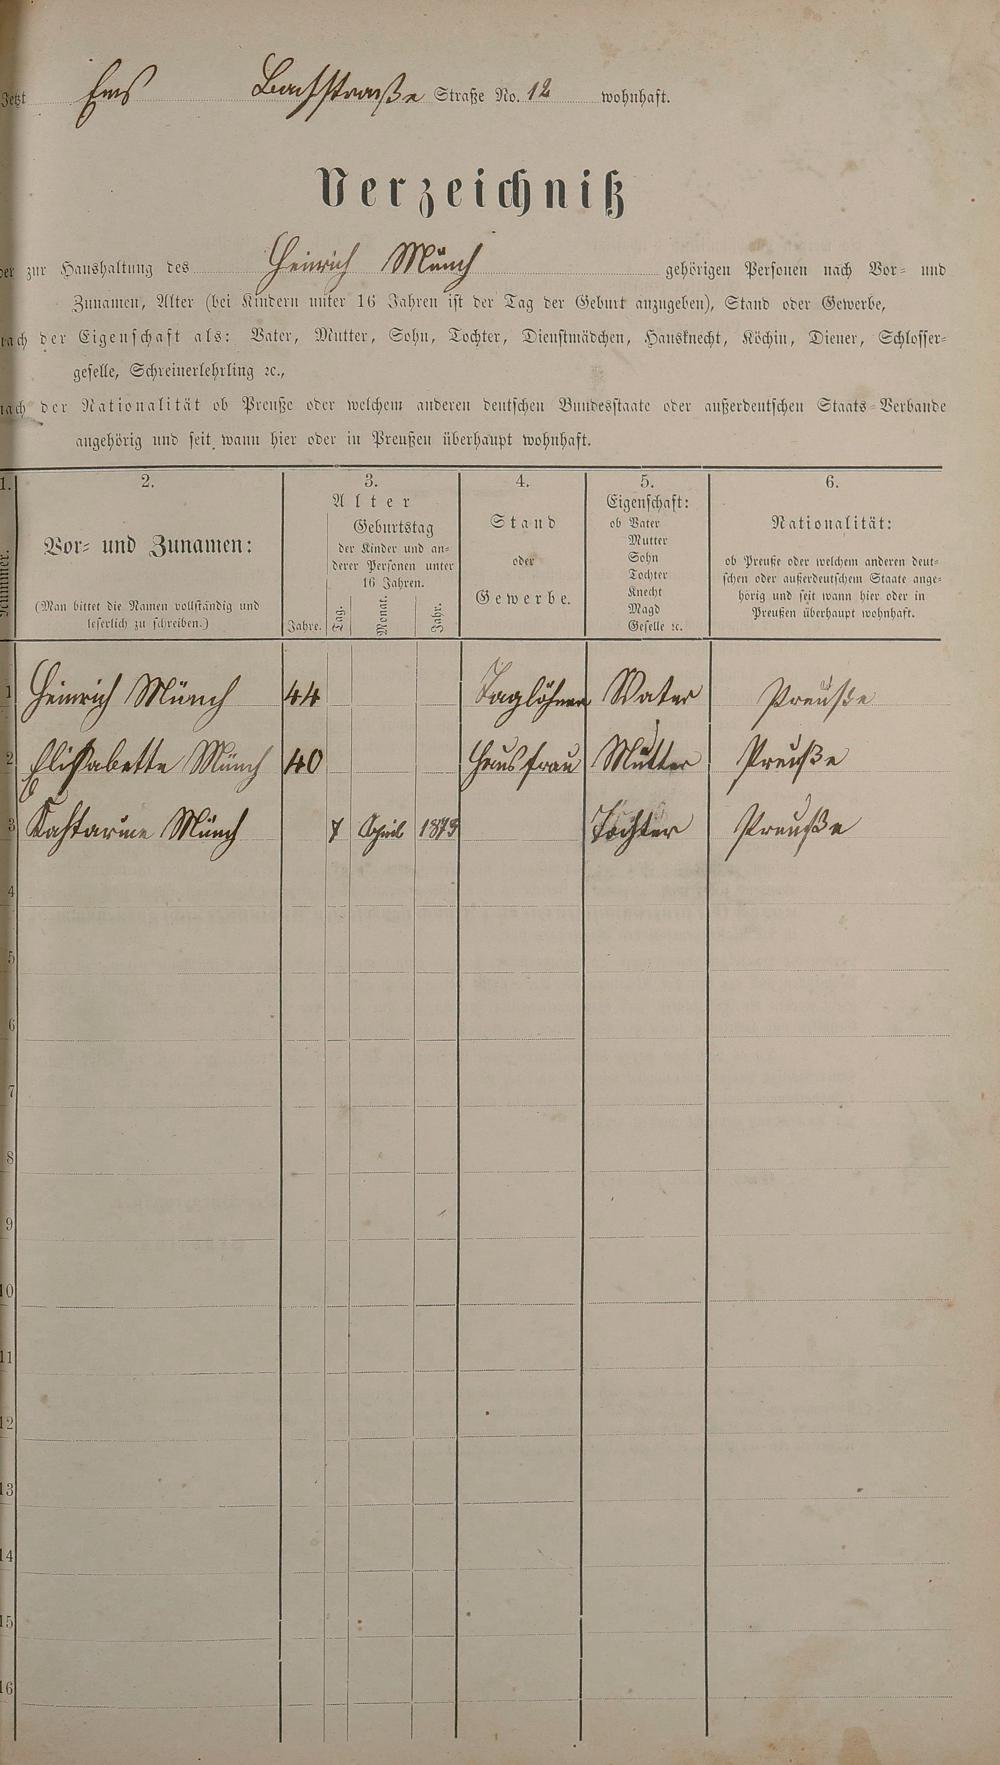 Jetzt Ems Bachstraße Straße No. 12 wohnhaft.
Verzeichniß
der zur Haushaltung des Heinrich Münch gehörigen Personen nach Vor- und
Zunamen, Alter (bei Kindern unter 16 Jahren ist der Tag der Geburt anzugeben), Stand oder Gewerbe,
nach der Eigenschaft als: Vater, Mutter, Sohn, Tochter, Dienstmädchen, Hausknecht, Köchin, Diener, Schlosser-
geselle, Schreinerlehrling ꝛc.,
nach der Nationalität ob Preuße oder welchem anderen deutschen Bundesstaate oder außerdeutschen Staats-Verbande
angehörig und seit wann hier oder in Preußen überhaupt wohnhaft.
1.
Nummer.
2.
Vor- und Zunamen:
(Man bittet die Namen vollständig und
leserlich zu schreiben.)
3.
Alter
Jahre.
Geburtstag
der Kinder und an-
derer Personen unter
16 Jahren.
Tag.
Monat.
Jahr.
4.
Stand
oder
Gewerbe.
5.
Eigenschaft:
ob Vater
Mutter
Sohn
Tochter
Knecht
Magd
Geselle ꝛc.
6.
Nationalität:
ob Preuße oder welchem anderen deut-
schen oder außerdeutschem Staate ange-
hörig und seit wann hier oder in
Preußen überhaupt wohnhaft.
1 Heinrich Münch 44 Taglöhner Vater Preuße
2 Elissabette Münch 40 Hausfrau Mutter Preuße
3 Kahtarine Münch 7 April 1873 Tochter Preuße
4
5
6
7
8
9
10
11
12
13
14
15
16